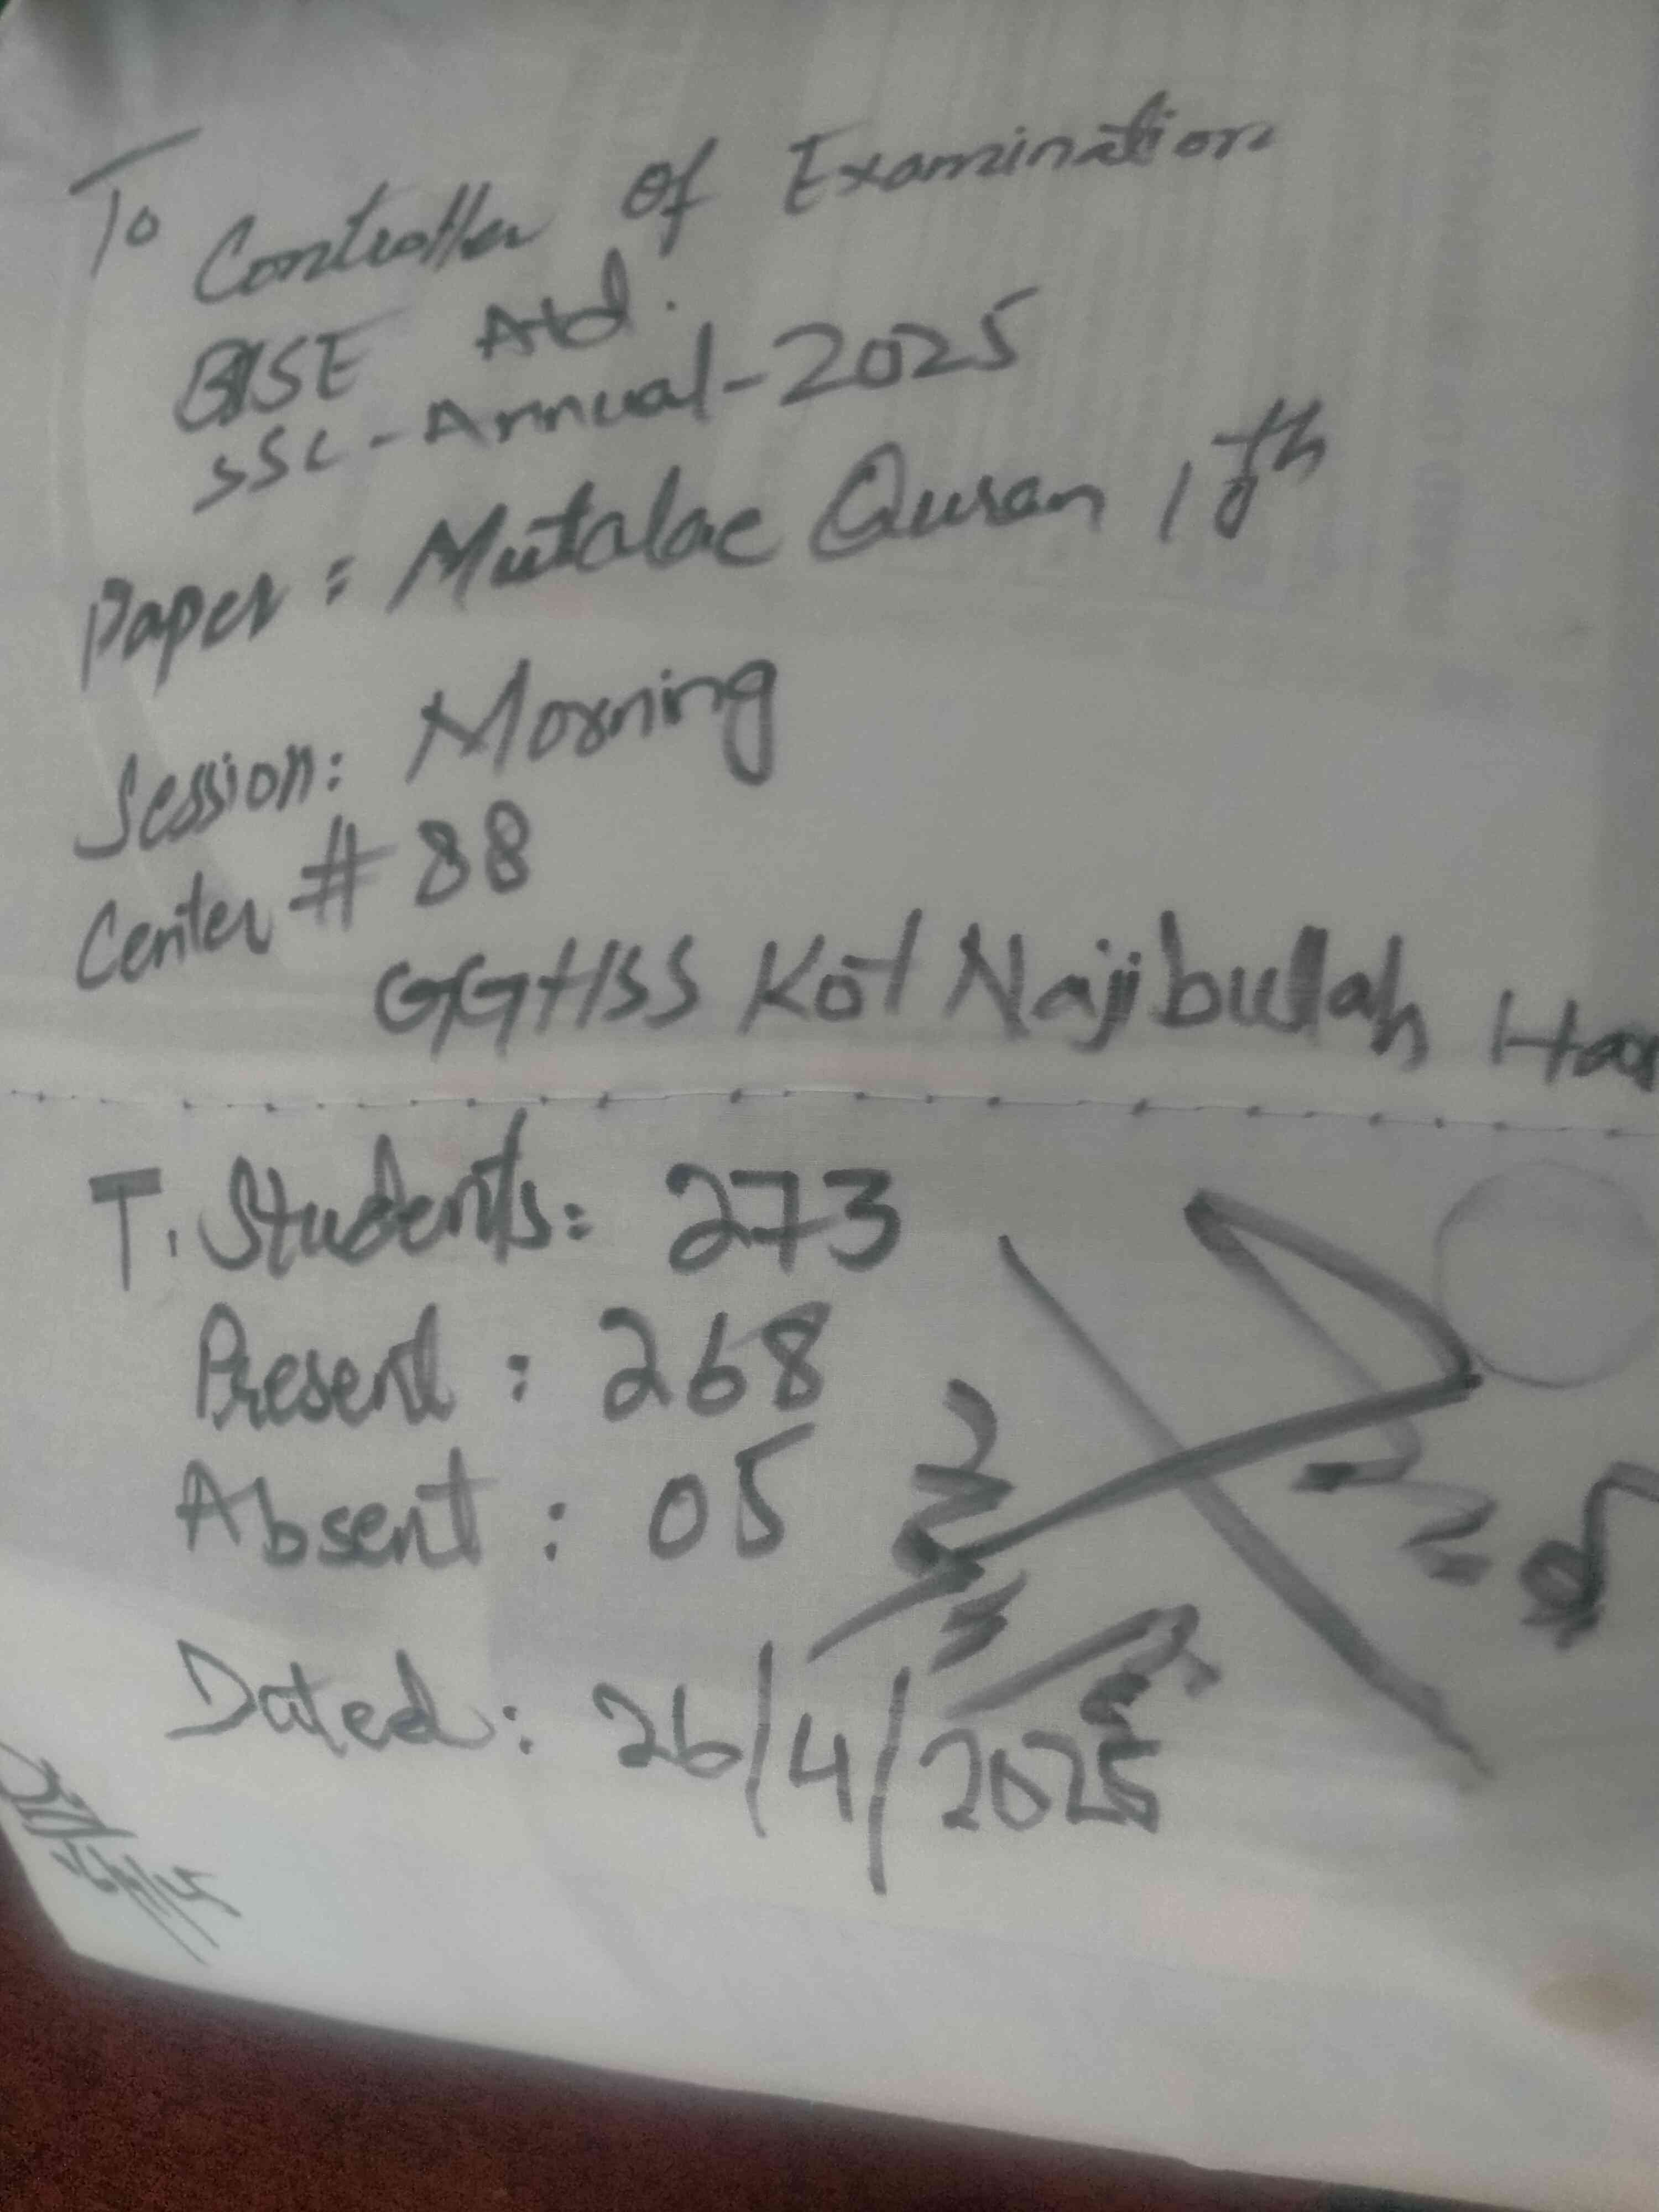 To
Controller of Examination
BISE Atd.
SSC-Annual-2025
Paper: Mutalae Quran 10th
Session: Morning
Center # 88
GGHSS Kot Najibullah
T. Students: 273
Present: 268
Absent: 05
Dated: 26/4/2025